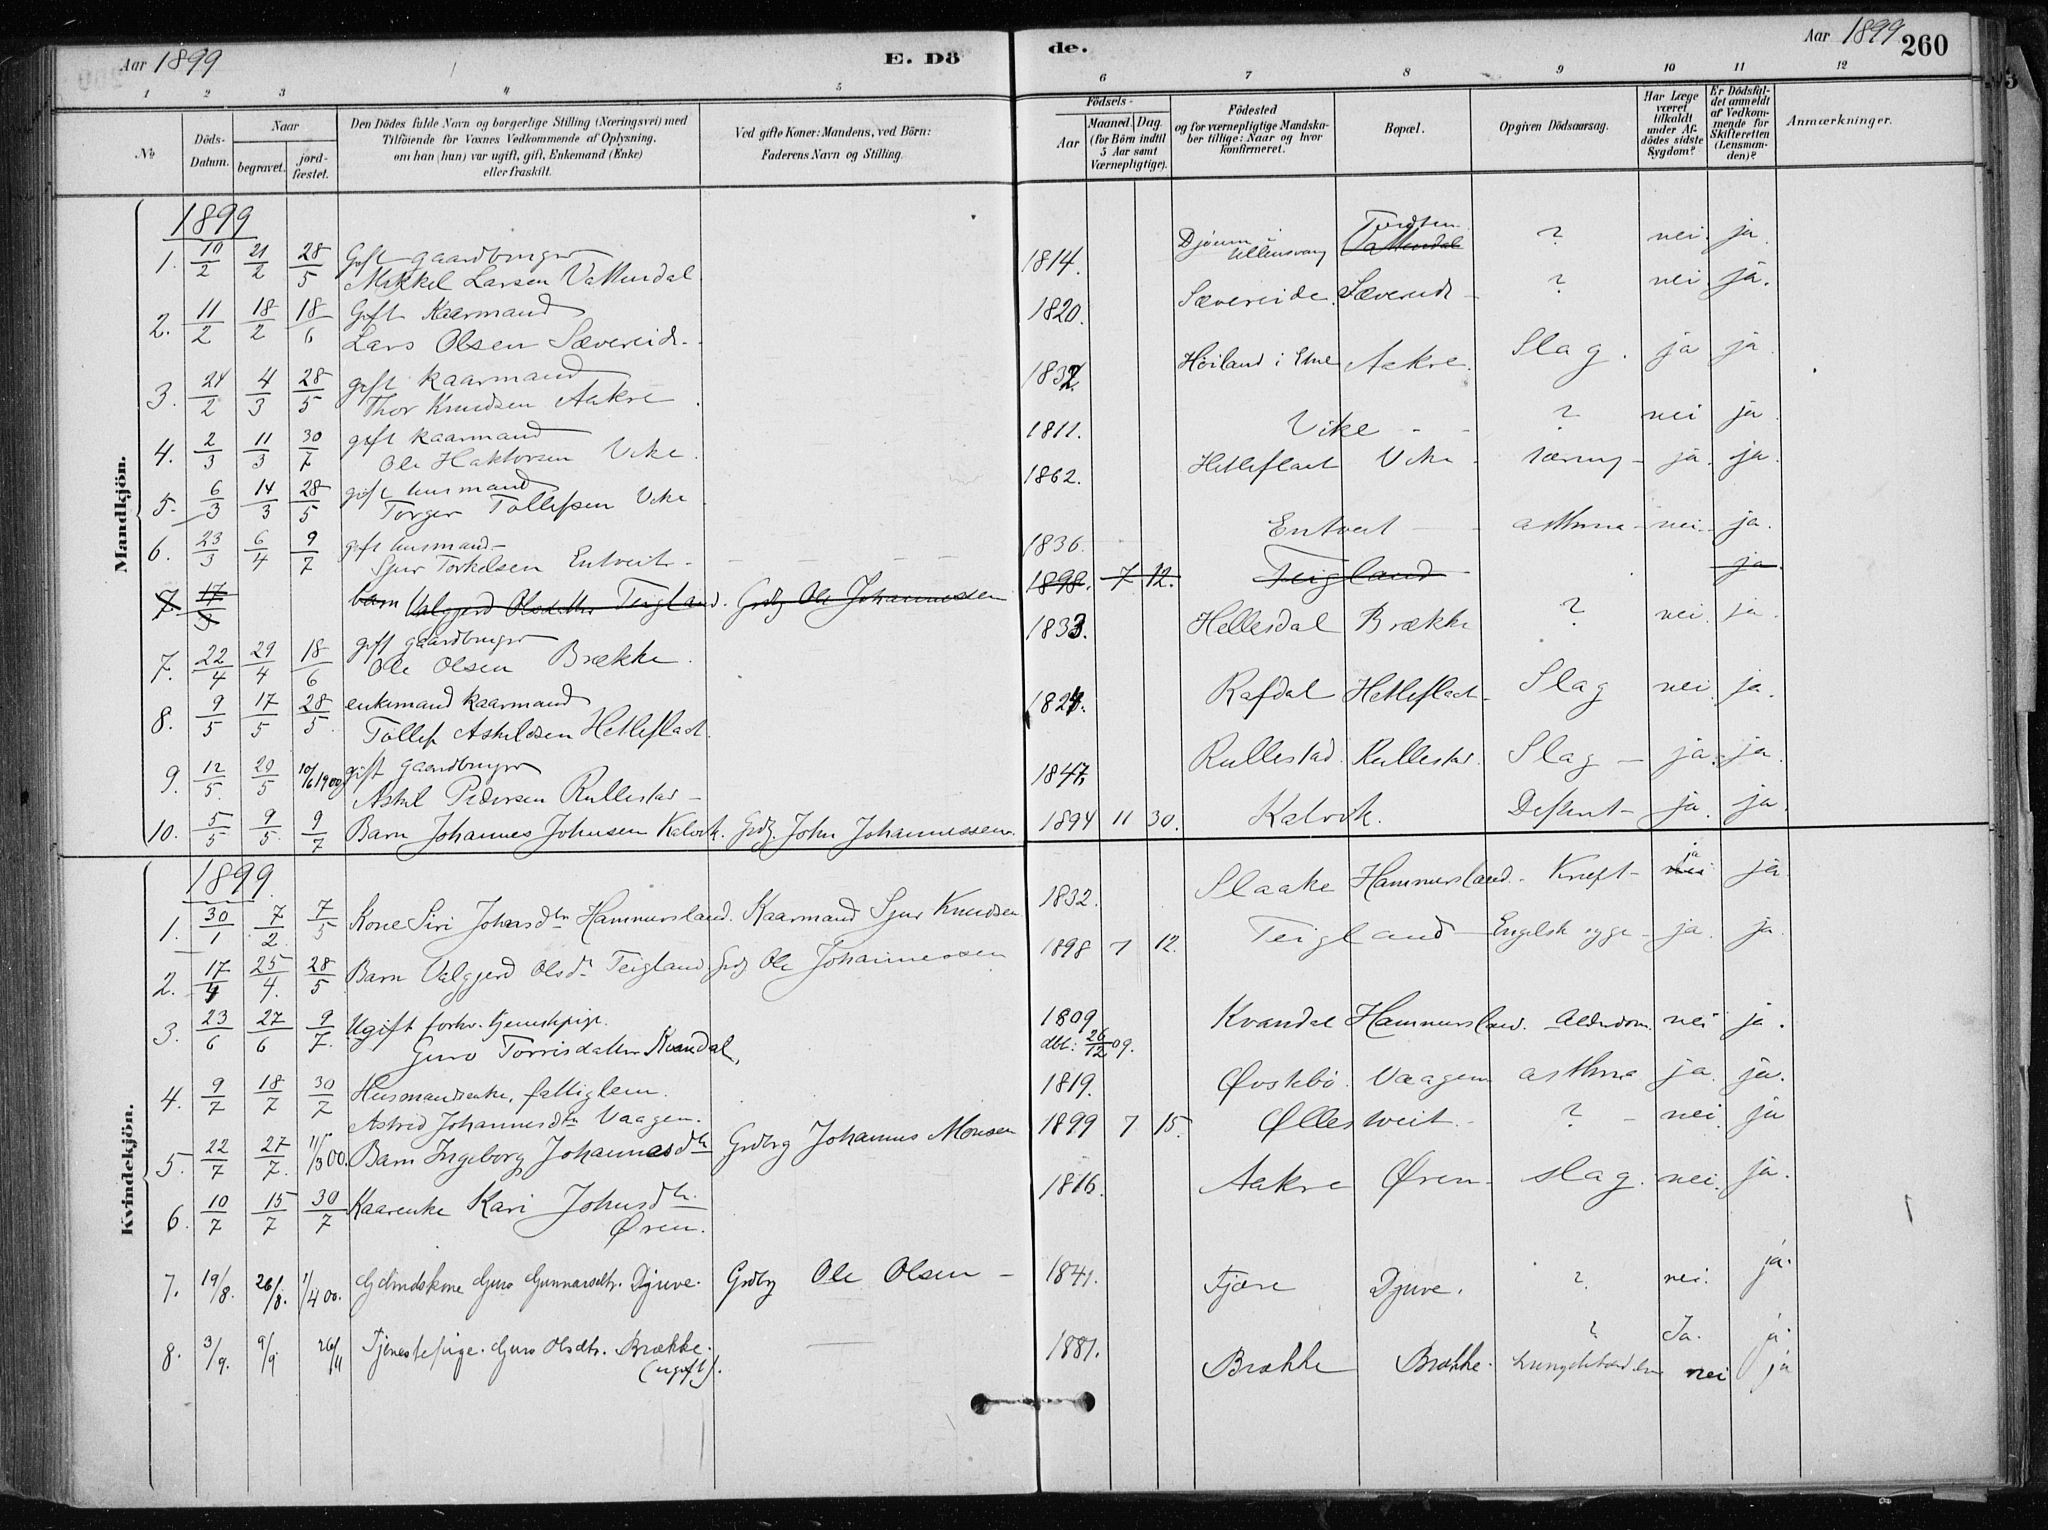 Aar 1899
E. Dö
de.
Aar 1899
260
1 2 3 4 5 6 7 8 9 10 11 12
№
Döds-Datum.
Naar
begravet.
jord-fæstet.
Den Dödes fulde Navn og borgerlige Stilling (Næringsvei) med
Tilföiende for Voxnes Vedkommende af Oplysning,
om han (hun) var ugift, gift, Enkemand (Enke)
eller fraskilt.
Ved gifte Koner: Mandens, ved Börn:
Faderens Navn og Stilling.
Födsels-
Aar
Maaned. Dag.
(for Börn indtil
5 Aar samt
Værnepligtige).
Födested
og for værnepligtige Mandska-
ber tillige: Naar og hvor
konfirmeret.
Bopæl.
Opgiven Dödsaarsag.
Har Læge
været
tilkaldt
under Af-
dödes sidste
Sygdom?
Er Dödsfal-
det anmeldt
af Vedkom-
mende for
Skifteretten
(Lensman-
den)?
Anmærkninger.
Mandkjön.
1899
1. 10/2 21/2 28/5 Gift gaardbruger Mikkel Larsen Vattendal 1814. Djönne i Ullensvang Vattendal ? nei ja
2. 11/2 18/2 18/6 Gift Kaarmand Lars Olsen Sævereide 1820. Sævereide Sævereide ? nei ja.
3. 24/2 4/3 28/5 gift kaarmand Thor Knudsen Aakre 1832. Höiland i Etne Aakre. Slag. ja ja
4. 2/3 11/3 30/7 gift kaarmand Ole Haktorsen Vike 1811. Vike - - ? nei ja
5. 6/3 14/3 28/5 gift husmand Torger Tollefsen Vike 1862. Hetleflaat Vike Tæring - ja ja.
6. 23/3 6/4 9/7 gift husmand Sjur Torkelsen Entveit 1836. Entveit - asthma - nei ja.
7 17/3 barn Valgjerd Olsdatter Teigland. Grdbr Ole Johannessen 1898. 7 12. Teigland ja
7. 22/4 29/4 18/6 gift gaardbruger Ole Olsen Brække. 1833. Hellesdal Brække ? nei. ja
8. 9/5 17/5 28/5. enkemand kaarmand Tollef Askildsen Hetleflaat. 1824. Rafdal Hetleflaat Slag nei. ja.
9. 12/5. 20/5 10/6 1900 gift gaardbruger Askil Pedersen Rullestad 1847. Rullestad Rullestad. Slag - ja ja
10. 5/5 9/5. 9/7 Barn Johannes Johnsen Kalvik. Grdbr. John Johannessen. 1894 11 30. Kalvik. Difterit - ja. ja.
Kvindekjön.
1899
1. 30/1 7/2. 7/5 Kone Siri Johnsdtr Hammersland. Kaarmand Sjur Knudsen 1832. Slaake Hammersland. Kræft - nei ja ja
2. 17/4 25/4. 28/5 Barn Valgjerd Olsdtr Teigland Grdbr Ole Johannessen 1898 7 12. Teigland Engelsk syge - ja. ja.
3. 23/6 27/6 9/7. Ugift forhv. tjenestepige. Guro Torrisdatter Kvandal, 1809 dbt: 26/12 09. Kvandal Hammersland. Alderdom. nei ja.
4. 9/7 18/7 30/7 Husmandsenke, fattiglem. Astrid Johannesdtr Vaagen. 1819. Øvstebö. Vaagen asthma ja. ja.
5. 22/7 27/7. 11/3 00. Barn Ingeborg Johannesdtr Grdbrg Johannes Monsen 1899 7 15. Øllestveit. ? - nei. ja
6. 10/7 15/7 30/7 Kaarenke Kari Johnsdtr. Øren. 1816. Aakre Øren. slag. nei. ja.
7. 19/8. 26/8. 1/4 00. Gdmdskone Guro Gunnarsdtr. Djuve. Grdbrg Ole Olsen - 1841. Fjære Djuve. ? nei. ja.
8. 3/9. 9/9 26/11 Tjenestepige. Guro Olsdtr. Brække. (ugift). 1881. Brække Brække. ? Ja. nei ja ja